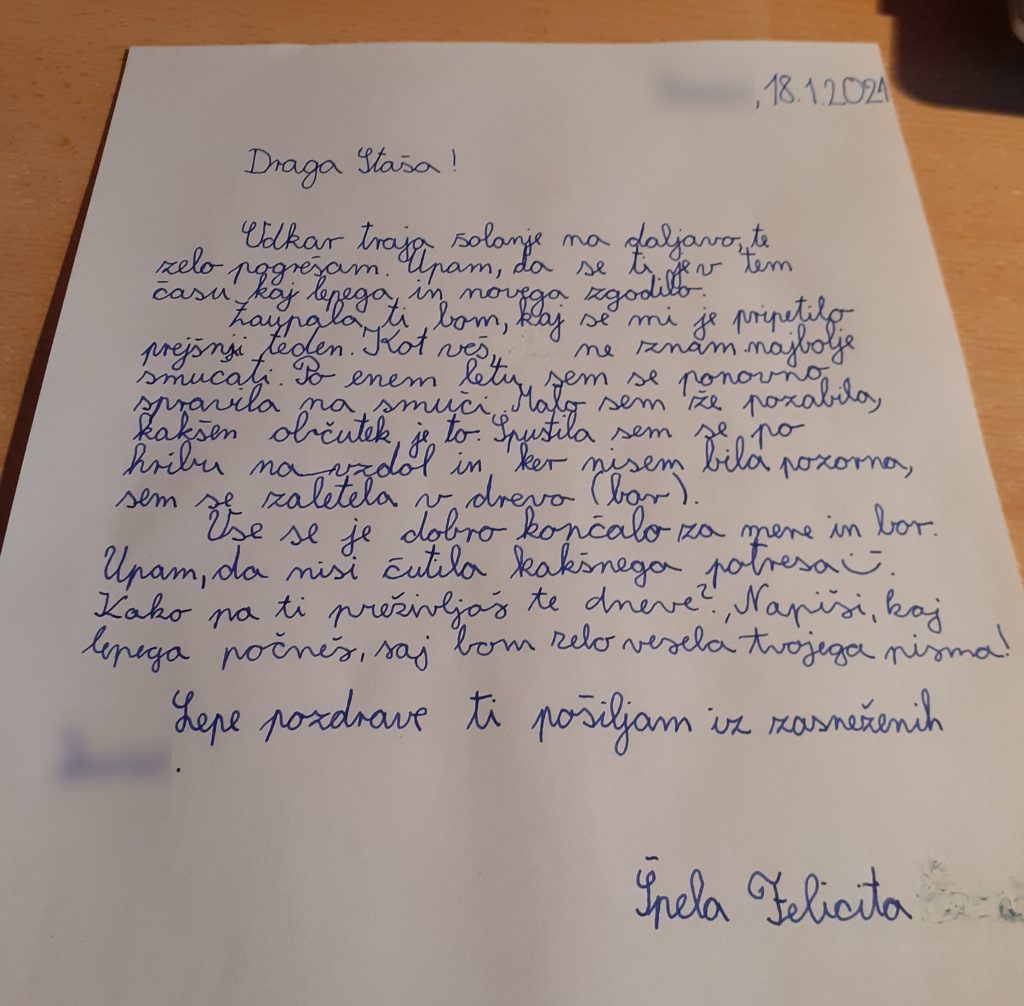 , 18.1.2021
Draga Staša!
Odkar traja šolanje na daljavo, te
zelo pogrešam. Upam, da se ti je v tem
času kaj lepega in novega zgodilo.
Zaupala ti bom, kaj se mi je pripetilo
prejšnji teden. Kot veš, ne znam najbolje
smučati. Po enem letu sem se ponovno
spravila na smuči. Malo sem že pozabila,
kakšen občutek je to. Spustila sem se po
hribu na vzdol in ker nisem bila pozorna,
sem se zaletela v drevo (bor).
Vse se je dobro končalo za mene in bor.
Upam, da nisi čutila kakšnega potresa :).
Kako pa ti preživljaš te dneve? Napiši, kaj
lepega počneš, saj bom zelo vesela tvojega pisma!
Lepe pozdrave ti pošiljam iz zasneženih
.
Špela Felicita